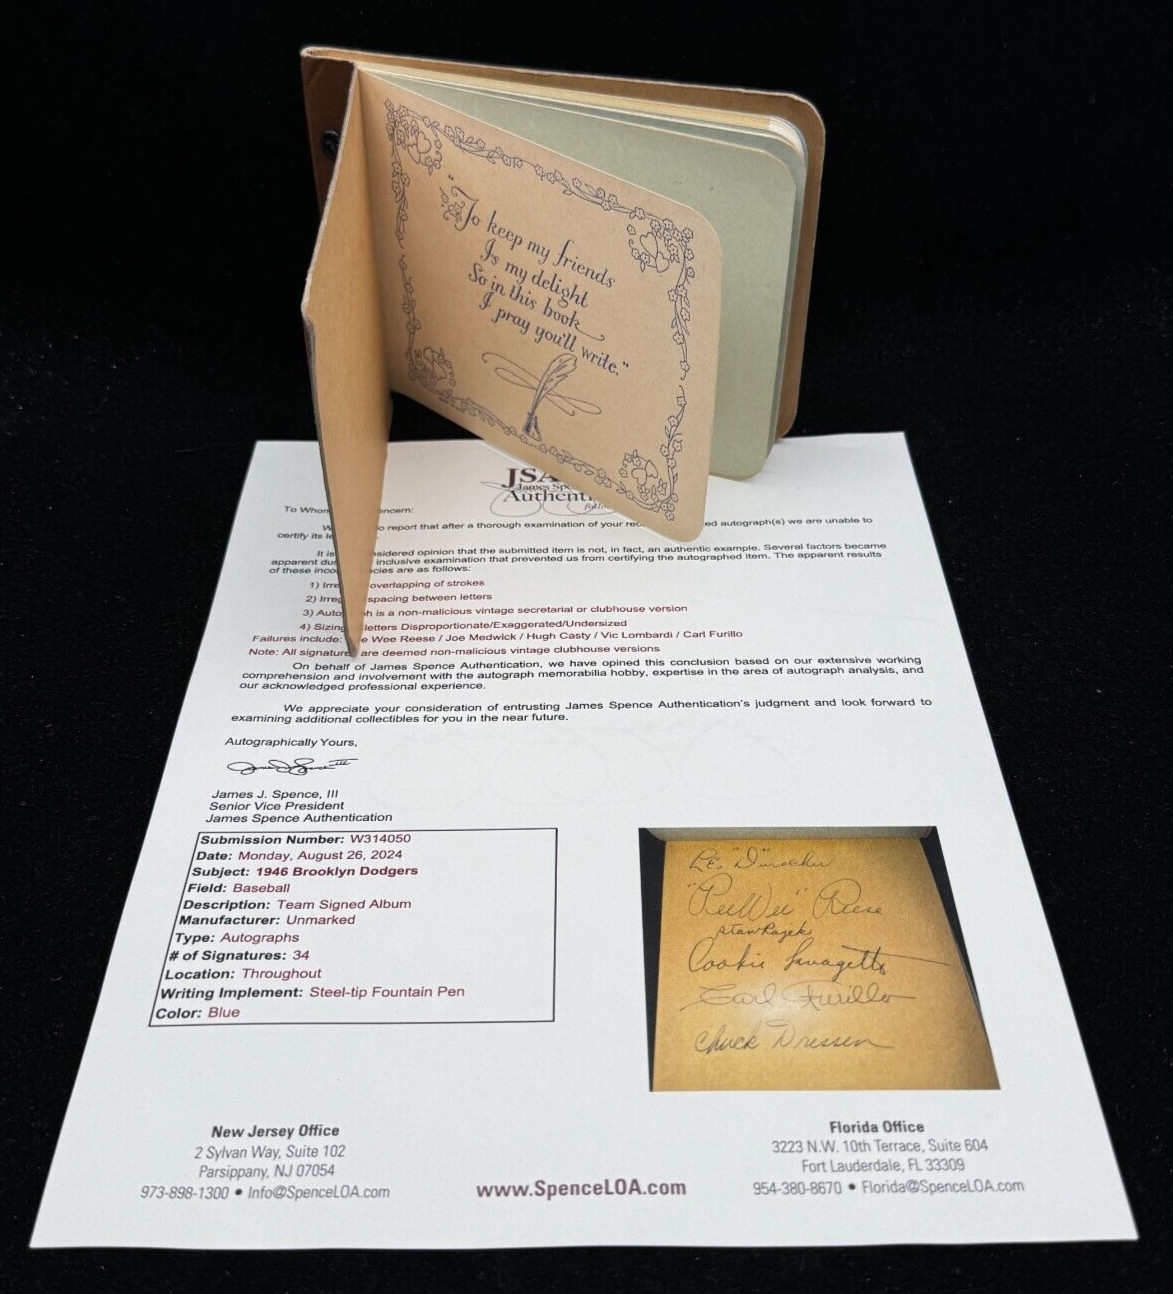 "To keep my friends
Is my delight
So in this book
I pray you'll write."
JSA
James Sp
Authent
To Whom oncern:
o report that after a thorough examination of your re ed autograph(s) we are unable to
certify its le
It is nsidered opinion that the submitted item is not, in fact, an authentic example. Several factors became
apparent du inclusive examination that prevented us from certifying the autographed item. The apparent results
of these inco cies are as follows:
1) Irre overlapping of strokes
2) Irreg spacing between letters
3) Auto h is a non-malicious vintage secretarial or clubhouse version
4) Sizing letters Disproportionate/Exaggerated/Undersized
Failures include: e Wee Reese / Joe Medwick / Hugh Casty / Vic Lombardi / Carl Furillo
Note: All signature are deemed non-malicious vintage clubhouse versions
On behalf of James Spence Authentication, we have opined this conclusion based on our extensive working
comprehension and involvement with the autograph memorabilia hobby, expertise in the area of autograph analysis, and
our acknowledged professional experience.
We appreciate your consideration of entrusting James Spence Authentication's judgment and look forward to
examining additional collectibles for you in the near future.
Autographically Yours,
James J. Spence, III
Senior Vice President
James Spence Authentication
Submission Number: W314050
Date: Monday, August 26, 2024
Subject: 1946 Brooklyn Dodgers
Field: Baseball
Description: Team Signed Album
Manufacturer: Unmarked
Type: Autographs
# of Signatures: 34
Location: Throughout
Writing Implement: Steel-tip Fountain Pen
Color: Blue
Le. "D"urocher
"PeeWee" Reese
Stan Rojek
Cookie Lavagetto
Carl Furillo
Chuck Dressen
New Jersey Office
2 Sylvan Way, Suite 102
Parsippany, NJ 07054
973-898-1300 • Info@SpenceLOA.com
www.SpenceLOA.com
Florida Office
3223 N.W. 10th Terrace, Suite 604
Fort Lauderdale, FL 33309
954-380-8670 • Florida@SpenceLOA.com